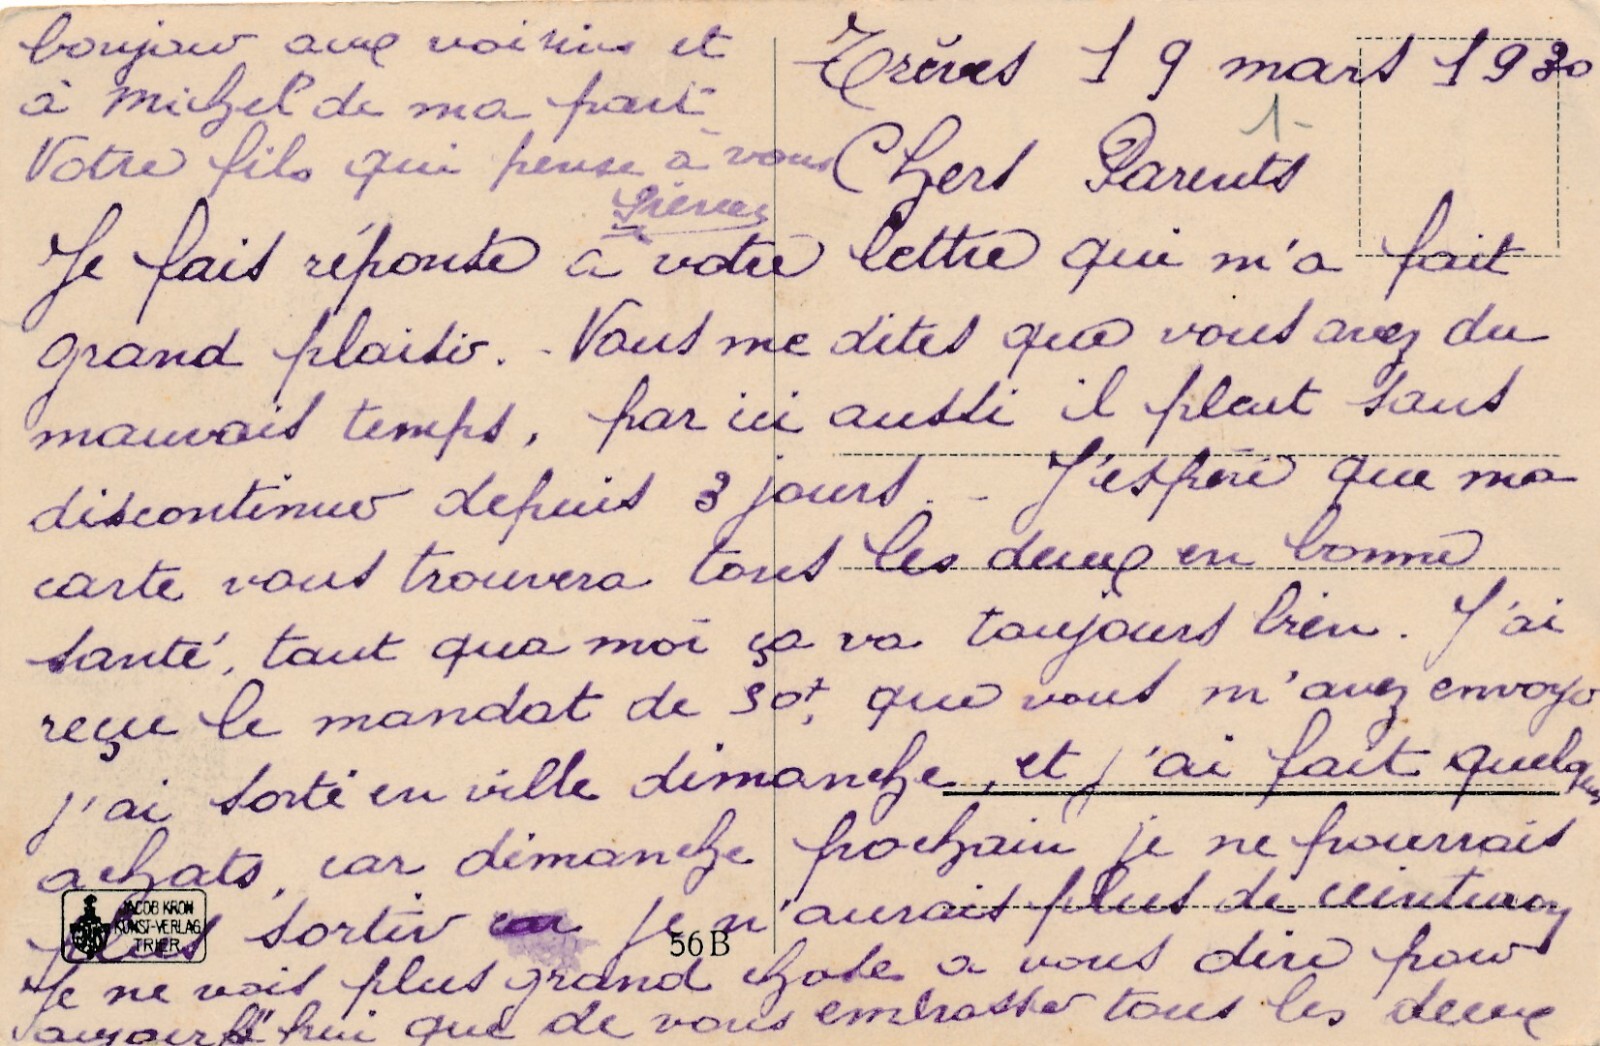 Trèves 19 mars 1930
1-
Chers Parents
Je fais réponse à votre lettre qui m'a fait
grand plaisir. - Vous me dites que vous avez du
mauvais temps, par ici aussi il pleut sans
discontinuer depuis 3 jours. - J'espère que ma
carte vous trouvera tous les deux en bonne
santé, tant qua moi ça va toujours bien. J'ai
reçu le mandat de 50f, que vous m'avez envoyo
j'ai sorti en ville dimanche, et j'ai fait quelques
achats, car dimanche prochain je ne pourrais
plus sortir car je n'aurais plus de
Je ne vois plus grand chose a vous dire pour
aujourd'hui que de vous embrasser tous les deux
bonjour aux voisins et
à Michel de ma part
Votre fils qui pense à vous
JACOB KRON
KUNST-VERLAG
TRIER
56B